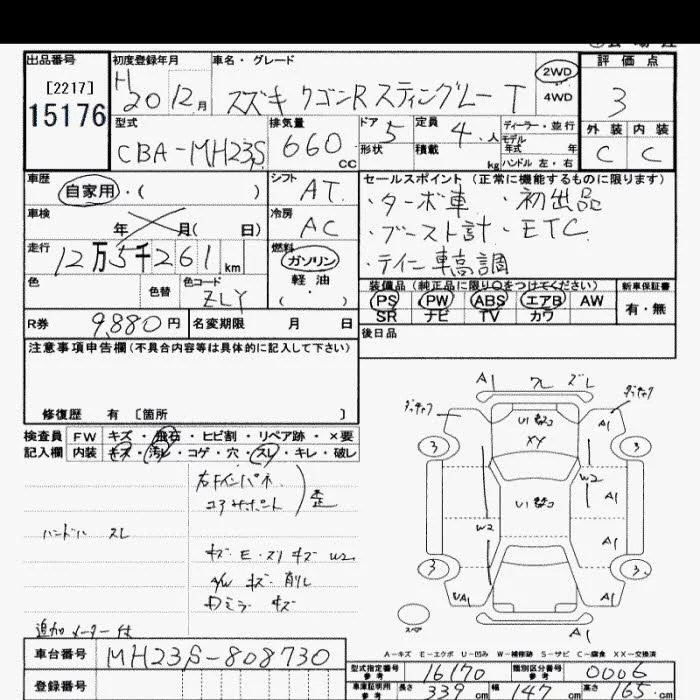 出品番号
[2217]
15176
初度登録年月
H20 12月
車名・グレード
スズキ ワゴンR スティングレー T
2WD
4WD
評価点
3
外装 内装
C C
型式
CBA-MH23S
排気量
660 cc
ドア 5
形状
定員 4 人
積載 kg
ディーラー・並行
モデル
年式 年
ハンドル 左・右
車歴
自家用・( )
シフト
AT
車検
年 月( 日)
冷房
AC
走行
12万5千261 km
燃料
ガソリン
軽油
( )
色
色替
色コード
ZLY
セールスポイント (正常に機能するものに限ります)
・ターボ車 ・初出品
・ブースト計・ETC
・テイン車高調
装備品(純正品に限り○をつけてください)
新車保証書
PS PW ABS エアB AW
SR ナビ TV カワ
有・無
R券 9,880円
名変期限 月 日
後日品
注意事項申告欄(不具合内容等は具体的に記入して下さい)
修復歴 有 [箇所 ]
検査員
記入欄
FW キズ・飛石・ヒビ割・リペア跡・×要
内装 キズ・汚レ・コゲ・穴・スレ・キレ・破レ
右Fインパネ
コアサポート
歪
ハンドル スレ
キズ E・スリキズ W2
A/W キズ・削レ
ミラー キズ
追加メーター付
A1
ズレ
A1
3
3
U1
XY
W2
A1
U1
W2
A1
A1
3
3
A1
A1
スペア
A-キズ E-エクボ U-凹み W-補修跡 S-サビ C-腐食 XX-交換済
車台番号 MH23S-808730
登録番号
型式指定番号
参考
16170
類別区分番号
参考
0006
車庫証明用
参考
長さ 339 cm
幅 147 cm
高さ 165 cm